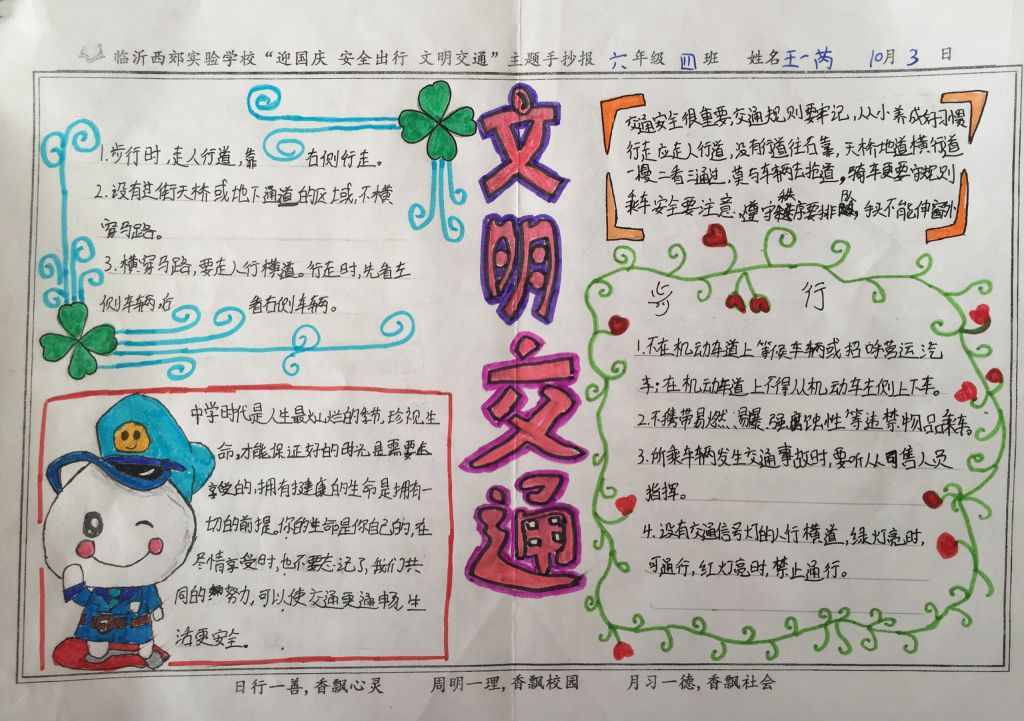 临沂西郊实验学校“迎国庆 安全出行 文明交通”主题手抄报 六年级 四班 姓名王一芮 10月3日
文明交通
1.步行时,走人行道,靠 右侧行走。
2.没有过街天桥或地下通道的区域,不横
穿马路。
3.横穿马路,要走人行横道。行走时,先看左
侧车辆后 看右侧车辆。
交通安全很重要,交通规则要牢记,从小养成好习惯
行走应走人行道,没有行道往右靠,天桥地道横行道
一慢二看三通过,莫与车辆去抢道。骑车更要守规则
乘车安全要注意,遵守秩序要排队,手头不能伸窗外
步行
1.不在机动车道上等候车辆或招呼营运汽
车;在机动车道上不得从机动车左侧上下车。
2.不携带易燃、易爆、强腐蚀性等违禁物品乘车。
3.所乘车辆发生交通事故时,要听从司售人员
指挥。
4.没有交通信号灯的人行横道,绿灯亮时,
可通行,红灯亮时,禁止通行。
中学时代是人生最灿烂的季节,珍视生
命,才能保证好的时光是需要去
享受的,拥有健康的生命是拥有一
切的前提。你的生命是你自己的,在
尽情享受时,也不要忘记了,我们共
同的努力,可以使交通更通畅,生
活更安全。
日行一善,香飘心灵 周明一理,香飘校园 月习一德,香飘社会